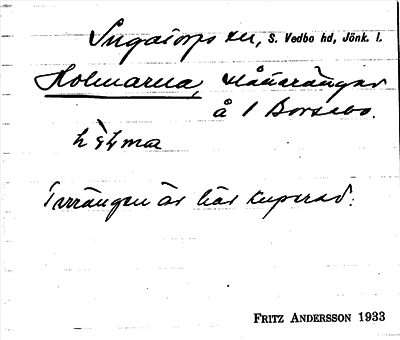 Ingatorps sn, S. Vedbo hd, Jönk. l.
Holmarna, slåtterängar
å 1 Borssebo.
Terrängen är här kuperad.
FRITZ ANDERSSON 1933